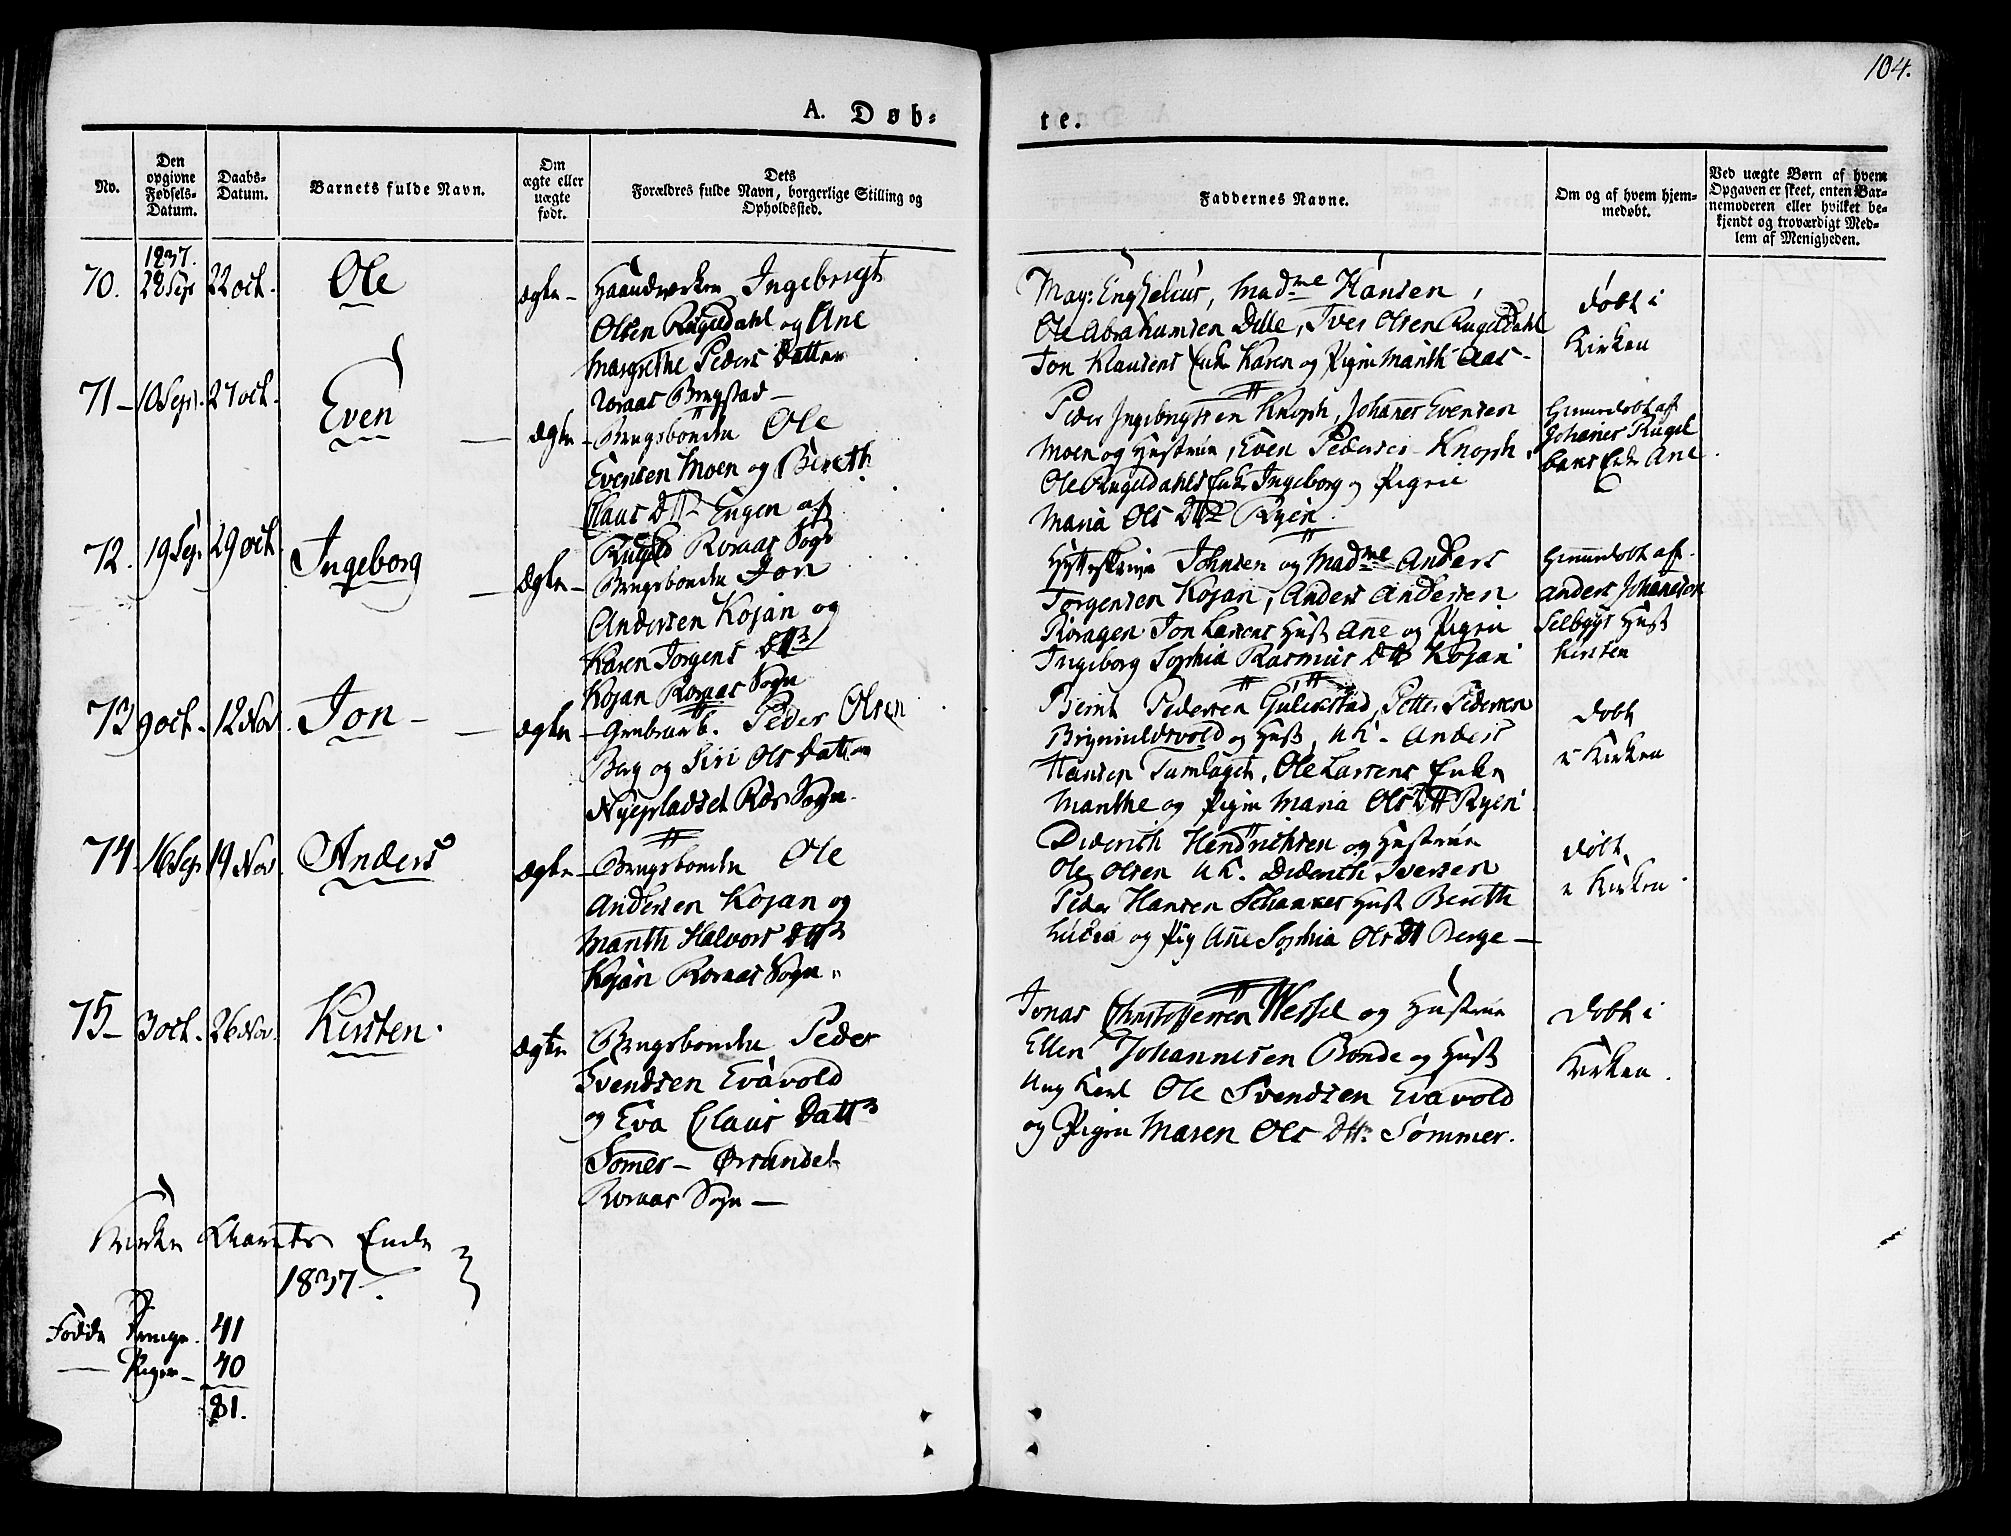 104.
A. Døb=
te.
No.
Den opgivne Fødsels-Datum.
Daabs-Datum.
Barnets fulde Navn.
Om ægte eller uægte født.
Dets Forældres fulde Navn, borgerlige Stilling og Opholdssted.
Faddernes Navne.
Om og af hvem hjemmedøbt.
Ved uægte Børn af hvem Opgaven er skeet, enten Barnemoderen eller hvilket bekjendt og troværdigt Medlem af Menigheden.
1837.
70. 28 Sep 22 oct. Ole ægte –
Haandverker Ingebrigt
Olsen Rugeldahl og Ane
Margrethe Peders Datter
Roraas Bergstad –
Madme Hansen,
Ole Abrahamsen Dille, Iver Olsen Rugeldahl
Jon Klausens Enke Karen og Pigen Marith Aas –
døbt i
Kirken
71 – 10 Sept. 27 oct. Even – ægte –
Brugsbonden Ole
Evensen Moen og Bereth
Claus Dtr Engen af
Rugeld Roraas Sogn
Peder Ingebrigtsen Knoph, Johanes Evensen
Moen og Hustrue, Even Pedersen Knoph,
Ole Rugeldahls Enke Ingeborg og Pigen
Maria Ols Dtr Ryen
hjemmedøbt af
Johanes Rugel
Enke Ane
72. 19 Sep. 29 oct. Ingeborg – ægte –
Brugsbonden Jon
Andersen Kojan og
Karen Jorgens Dtr
Kojan Roraas Sogn
Johnsen og Madme Anders
Jorgensen Kojan, Anders Andersen
Jon Larsens Hust Ane og Pigen
Ingeborg Sophia Rasmus Dtr Kojan
hjemmedøbt af
Anders Johansen
Selbyys Hust
Kirsten
73 9 oct. 12 Nov. Jon – – ægte –
Grubearb. Peder Olsen
Berg og Siri Ols Datter
Nyepladset Rørs Sogn.
Bernt Pedersen Gulikstad, Petter Pedersen
Brynildsvold og Hust, UK. Anders
Hansen Tamlaget, Ole Larsens Enke
Manthe og Pigen Maria Ols Dtr Ryen
døbt
i Kirken
74 – 16 Sep 19 Nov Anders ægte –
Brugsbonden Ole
Andersen Kojan og
Marith Halvors Dtr
Kojan Roraas Sogn.
Diderich Hendrichsen og Hustrue
Ole Olsen UK. Diderich Iversen
Peder Hansen Hust Bereth
Lucia og Pig Ane Sophia Ols Dtr Berge –
døbt
i Kirken.
75 – 3 oct. 26 Nov. Kirsten. ægte
Brugsbonden Peder
Svendsen Evavold
og Eva Claus Datter
Somer – Ørsundet
Roraas Sogn –
Jonas Christophersen Wessel og Hustrue
Ellen Johannesen Bonde og Hust
Ung Karl Ole Svendsen Evavold
og Pigen Maren Ols Dtr Sommer.
døbt i
Kirken.
Kirke Aarets Ende
1837.
Fødde Drenge. 41
– Piger – 40
81.